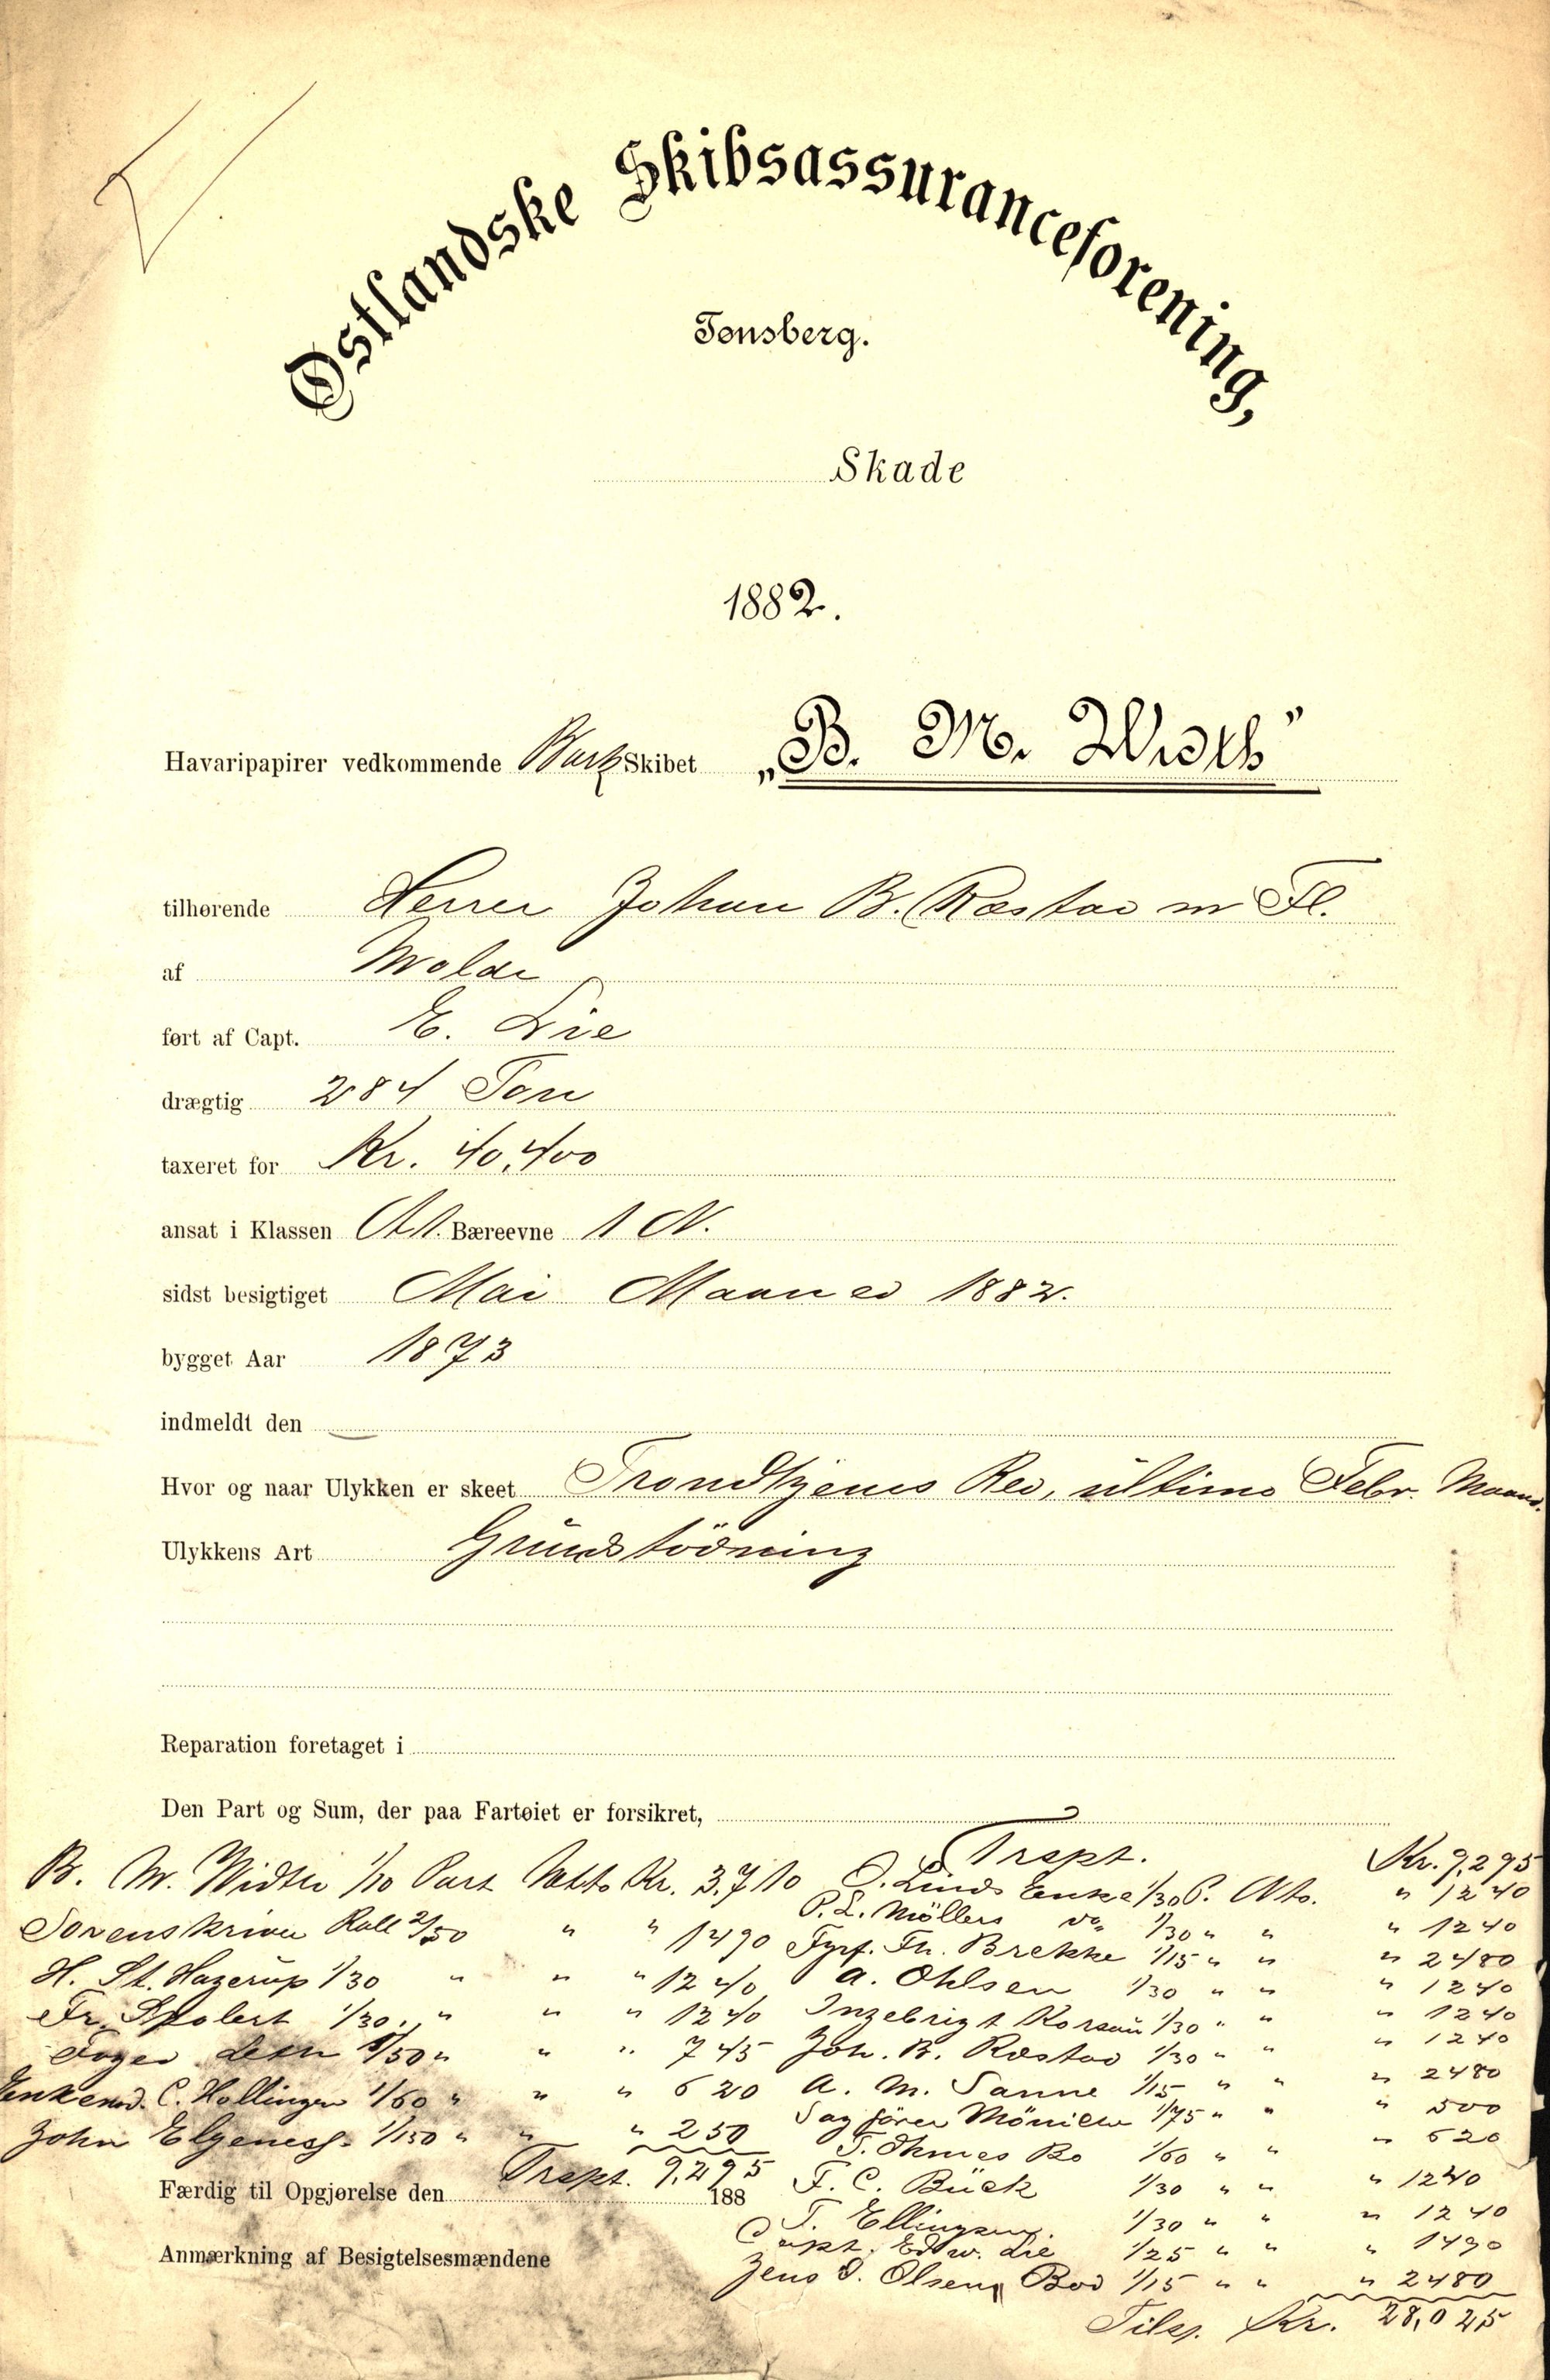 Østlandske Skibsassuranceforening,
Tønsberg.
Skade
1882.
Havaripapirer vedkommende Bark Skibet „B. M. Width"
tilhørende Herrer Johan B. Røstad m Fl.
af Molde
ført af Capt. E. Lie
drægtig 284 Ton
taxeret for Kr. 40,400
ansat i Klassen A1. Bæreevne 1 N.
sidst besigtiget Mai Maaned 1882.
bygget Aar 1873
indmeldt den
Hvor og naar Ulykken er skeet Trondhjems Red, ultimo Febr. Maaned.
Ulykkens Art Grundstödning
Reparation foretaget i
Den Part og Sum, der paa Fartøiet er forsikret,
B. M. Width 1/10 Part Netto Kr. 3,710
Sorenskriver Roll 2/50 " " 1490
H. St. Hagerup 1/30 " " " 1240
Fr. 1/30. " " " 1240
Foged 1/50 " " " 745
Enkemd. C. Hollinger 1/60 " " " 620
John Elgenes 1/150 " " " 250
Trspt. 9,295
Trspt. Kr. 9,295
O. Linds Enke 1/30 P. Nto. " 1240
P. L. Möllers do 1/30 " " " 1240
Fyrf. Th. Brekke 1/15 " " " 2480
A. Ohlsen 1/30 " " " 1240
Ingebrigt 1/30 " " " 1240
Joh. B. Røstad 1/30 " " " 1240
A. M. Sanne 1/15 " " " 2480
Sagförer 1/75 " " " 500
Bo 1/60 " " " 620
F. C. Bück 1/30 " " " 1240
T. Ellingsen. 1/30 " " " 1240
Capt. Edw. Lie 1/25 " " " 1490
Jens O. Olsen, Bod 1/15 " " " 2480
Tilsl. Kr. 28,025
Færdig til Opgjørelse den 188
Anmærkning af Besigtelsesmændene